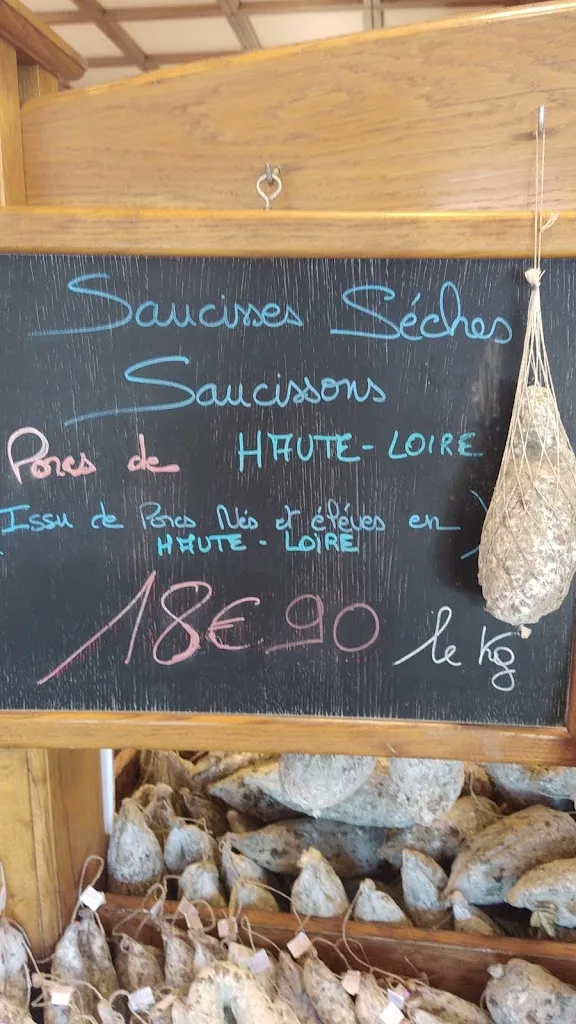 Saucisses Séches
Saucissons
Porcs de HAUTE-LOIRE
Issu de Porcs Nés et élévés en
HAUTE-LOIRE
18€90 le Kg